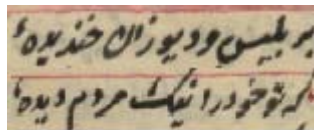 بر بلیس و دیو زان خندیدهٔ
که تو خود را نیک مردم دیدهٔ